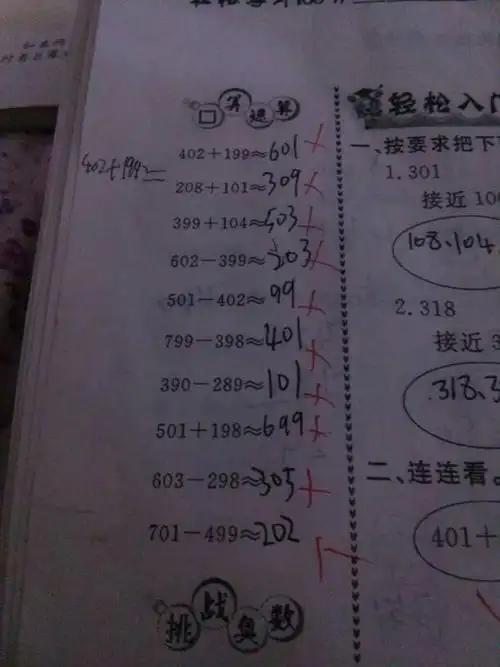 口算速算
402+199≈601
402+199≈
208+101≈309
399+104≈503
602-399≈203
501-402≈99
799-398≈401
390-289≈101
501+198≈699
603-298≈305
701-499≈202
挑战奥数
轻松入门
一、按要求把下
1.301
接近100
108、104
2.318
接近3
318、3
二、连连看。
401+